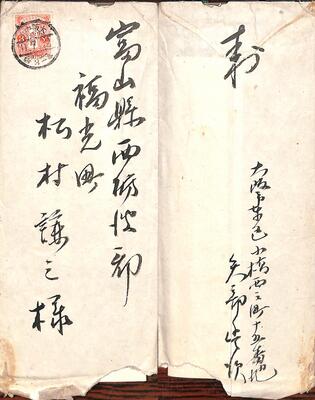 富山縣西礪波郡
福光町
松村謙三様
大阪市東区小橋西之町十五番地
矢部